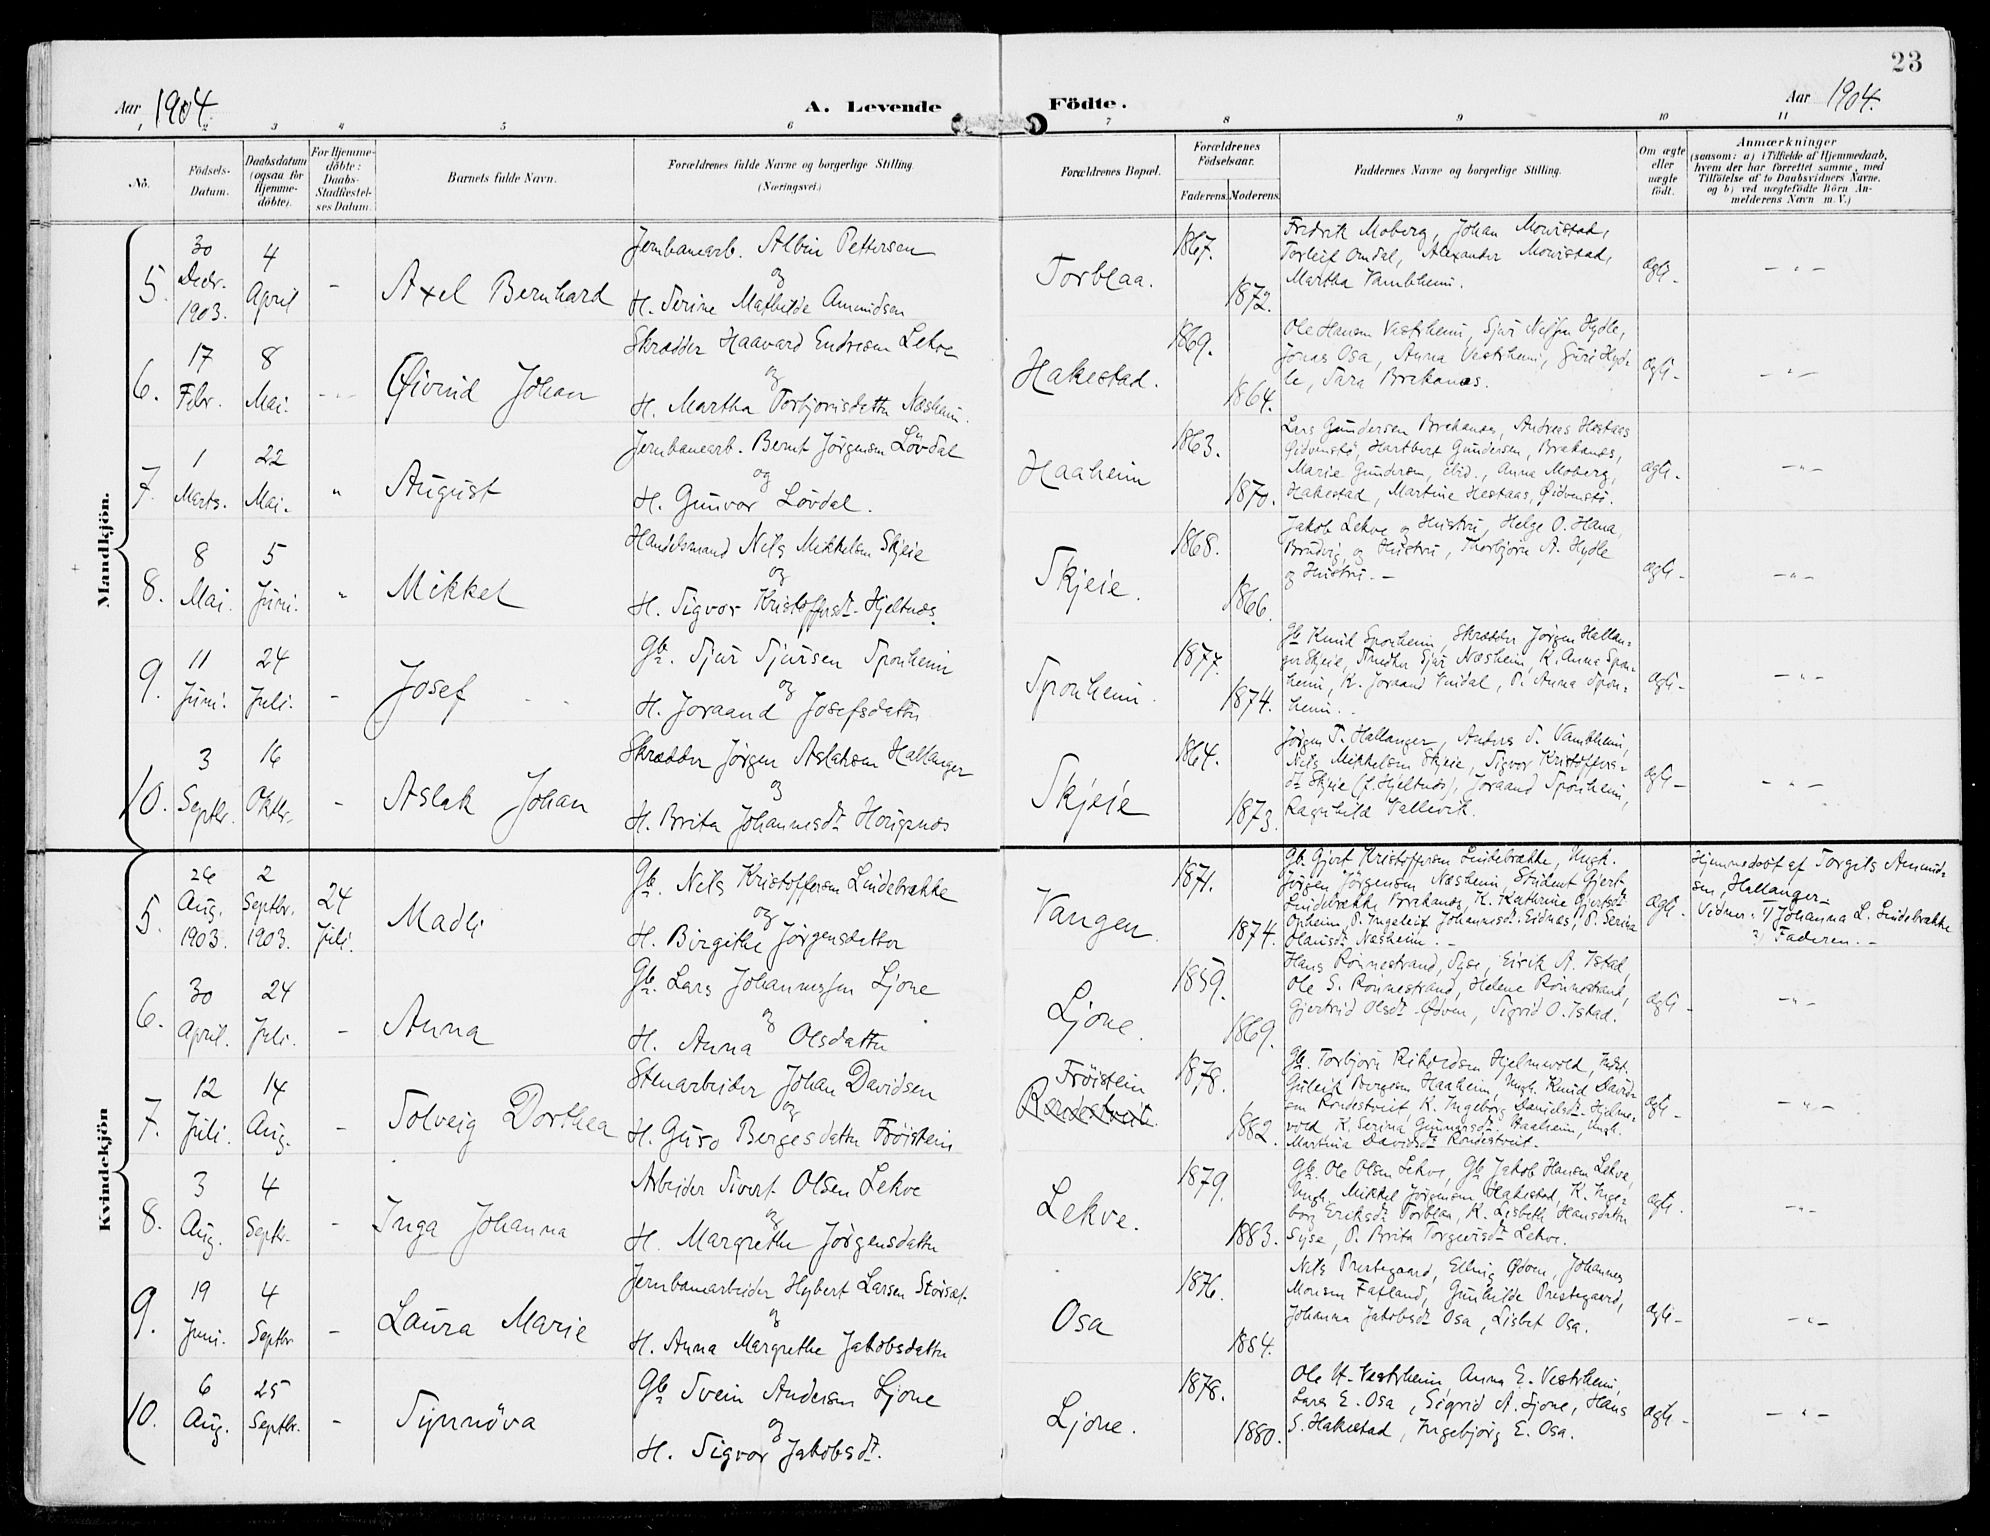 23
Aar 1904.
A. Levende Födte.
Aar 1904.
1 2 3 4 5 6 7 8 9 10 11
No.
Födsels-Datum.
Daabsdatum (ogsaa for Hjemme-döbte).
For Hjemme-döbte: Daabs-Stadfæstel-ses Datum.
Barnets fulde Navn.
Forældrenes fulde Navne og borgerlige Stilling.
(Næringsvei.)
Forældrenes Bopæl.
Forældrenes Födselsaar.
Faderens. Moderens.
Faddernes Navne og borgerlige Stilling.
Om ægte eller uægte födt.
Anmærkninger
(saasom: a) i Tilfælde af Hjemmedaab,
hvem der har forrettet samme, med
Tilföielse af to Daabsvidners Navne.
og b) ved uægtefödte Börn An-
melderens Navn m. V.)
Mandkjön.
5. 30 Decbr. 1903. 4 April - Axel Bernhard
Jernbanearb. Albin Pettersen
og
H. Serine Mathilde Amundsen
Torblaa. 1867. 1872.
Fredrik Moberg, Johan Monistad,
Torleif Omdal, Alexander Monistad,
Martha Vambheim.
ægte - - " -
6. 17 Febr. 8 Mai. - " - Øivind Johan
Skrædder Haavard Endresen Lekve
og
H. Martha Torbjörnsdatter Næsheim.
Hakestad. 1869. 1864.
Ole Hansen Vestrheim, Sjur Nilssen Hydle,
Jonas Osa, Anna Vestrheim, Guri Hyd-
le, Sara Brakanes.
ægte - - " -
7. 1 Marts. 22 Mai. " August
Jernbanearb. Bernt Jörgensen Lövdal
og
H. Gunvor Lövdal.
Haaheim 1863. 1870.
Lars Gundersen Brakanes, Andreas Hestaas
Øidvenstö, Hartbert Gundersen, Brakanes,
Marie Gundersen, ibid., Anna Moberg,
Hakestad, Martine Hestaas, Øidvenstö.
ægte. - " -
8. 8 Mai. 5 Juni. " Mikkel
Handelsmand Nils Mikkelsen Skjeie
og
H. Sigvor Kristoffersdt. Hjeltnæs.
Skjeie. 1868. 1866.
Jakob Lekve og Hustru, Helge O. Hana,
Brudvig, og Hustru, Thorbjörn A. Hydle
og Hustru. -
ægte - - " -
9. 11 Juni. 24 Juli. - Josef
Gb. Sjur Sjursen Sponheim
og
H. Joraand Josefsdatter
Sponheim. 1877. 1874.
Gb. Knud Sponheim, Skrædder Jörgen Hallan-
ger Skjeie, Snedker Sjur Næsheim, K. Anna Spon-
heim, K. Joraand Vindal, P. Anna Spon-
heim. -
ægte - - " -
10. 3 Septbr. 16 Oktbr. - Aslak Johan
Skrædder Jörgen Aslaksen Hallanger
og
H. Brita Johannesdt. Hougsnæs
Skjeie 1864. 1873.
Jörgen T. Hallanger, Anders S. Vambheim,
Nils Mikkelsen Skjeie, Sigvor Kristoffers-
dt. Skjeie (f. Hjeltnæs), Joraand Sponheim,
Ragnhild Vallevik.
ægte - - " -
Kvindekjön
5. 26 Aug. 1903. 2 Septbr. 1903. 24 Juli. Madli
Gb. Nils Kristoffersen Lindebrække
og
H. Birgithe Jörgensdatter
Vangen. 1871. 1874.
Gb. Gjert Kristoffersen Lindebrække, Ungk.
Jörgen Jörgensen Næsheim, Student Gjert
Lindebrække Brakanes, K. Kathrine Gjertsdt.
Opheim, P. Ingeleif Johannesdt. Eidnæs, P. Serina
Olausdt. Næsheim. -
ægte.
Hjemmedöbt af Torgils Amund-
sen, Hallanger. -
Vidner: 1) Johanna L. Lindebrække
2) Faderen. -
6. 30 April. 24 Juli. - Anna
Gb. Lars Johannessen Ljone
og
H. Anna Olsdatter
Ljone. 1859. 1869.
Hans Rönnestrand, Syse, Eirik A. Istad,
Ole S. Rönnestrand, Helene Rönnestrand,
Gjertrud Olsdt. Ødven, Sigrid O. Istad.
ægte - - " -
7. 12 Juli. 14 Aug. - Solveig Dorthea
Stenarbeider Johan Davidsen
og
H. Guro Bergesdatter Fröistein
Fröistein
Röndestveit. 1878. 1882.
Gb. Torbjörn Rikoldsen Hjelmvold, Inst.
Guleik Bergesen Haaheim, Ungk. Knud David-
sen Rondestveit, K. Ingeborg Danielsdt. Hjelme-
vold, K. Serina Gunnarsdt. Haaheim, Ungk.
Martina Davidsdt. Rondestveit.
ægte - - " -
8. 3 Aug. 4 Septbr. - Inga Johanna
Arbeider Sivert Olsen Lekve
og
H. Margrethe Jörgensdatter
Lekve. 1879. 1883.
Gb. Ole Olsen Lekve, Gb. Jakob Hansen Lekve,
Ungk. Mikkel Jörgensen Hakestad, K. Inge-
borg Eriksdt. Torblaa, K. Lisbeth Hansdatter
Syse, P. Brita Torgeirsdt. Lekve.
ægte. - " -
9. 19 Juni. 4 Septbr - Laura Marie
Jernbanearbeider Hybert Larsen Storsæt.
og
H. Anna Margrethe Jakobsdatter
Osa 1876. 1884.
Nils Prestegaard, Elling Ødven, Johannes
Monsen Fatland, Gunhilde Prestegaard,
Johanna Jakobsdt. Osa, Lisbet Osa.
ægte - - " -
10. 6 Aug. 25 Septbr. - Synnöva
Gb. Svein Andersen Ljone
og
H. Sigvor Jakobsdt.
Ljone. 1878. 1880.
Ole H. Vestrheim, Anna E. Vestrheim,
Lars E. Osa, Sigrid A. Ljone, Hans
S. Hakestad, Ingebjörg E. Osa.
ægte - - " -